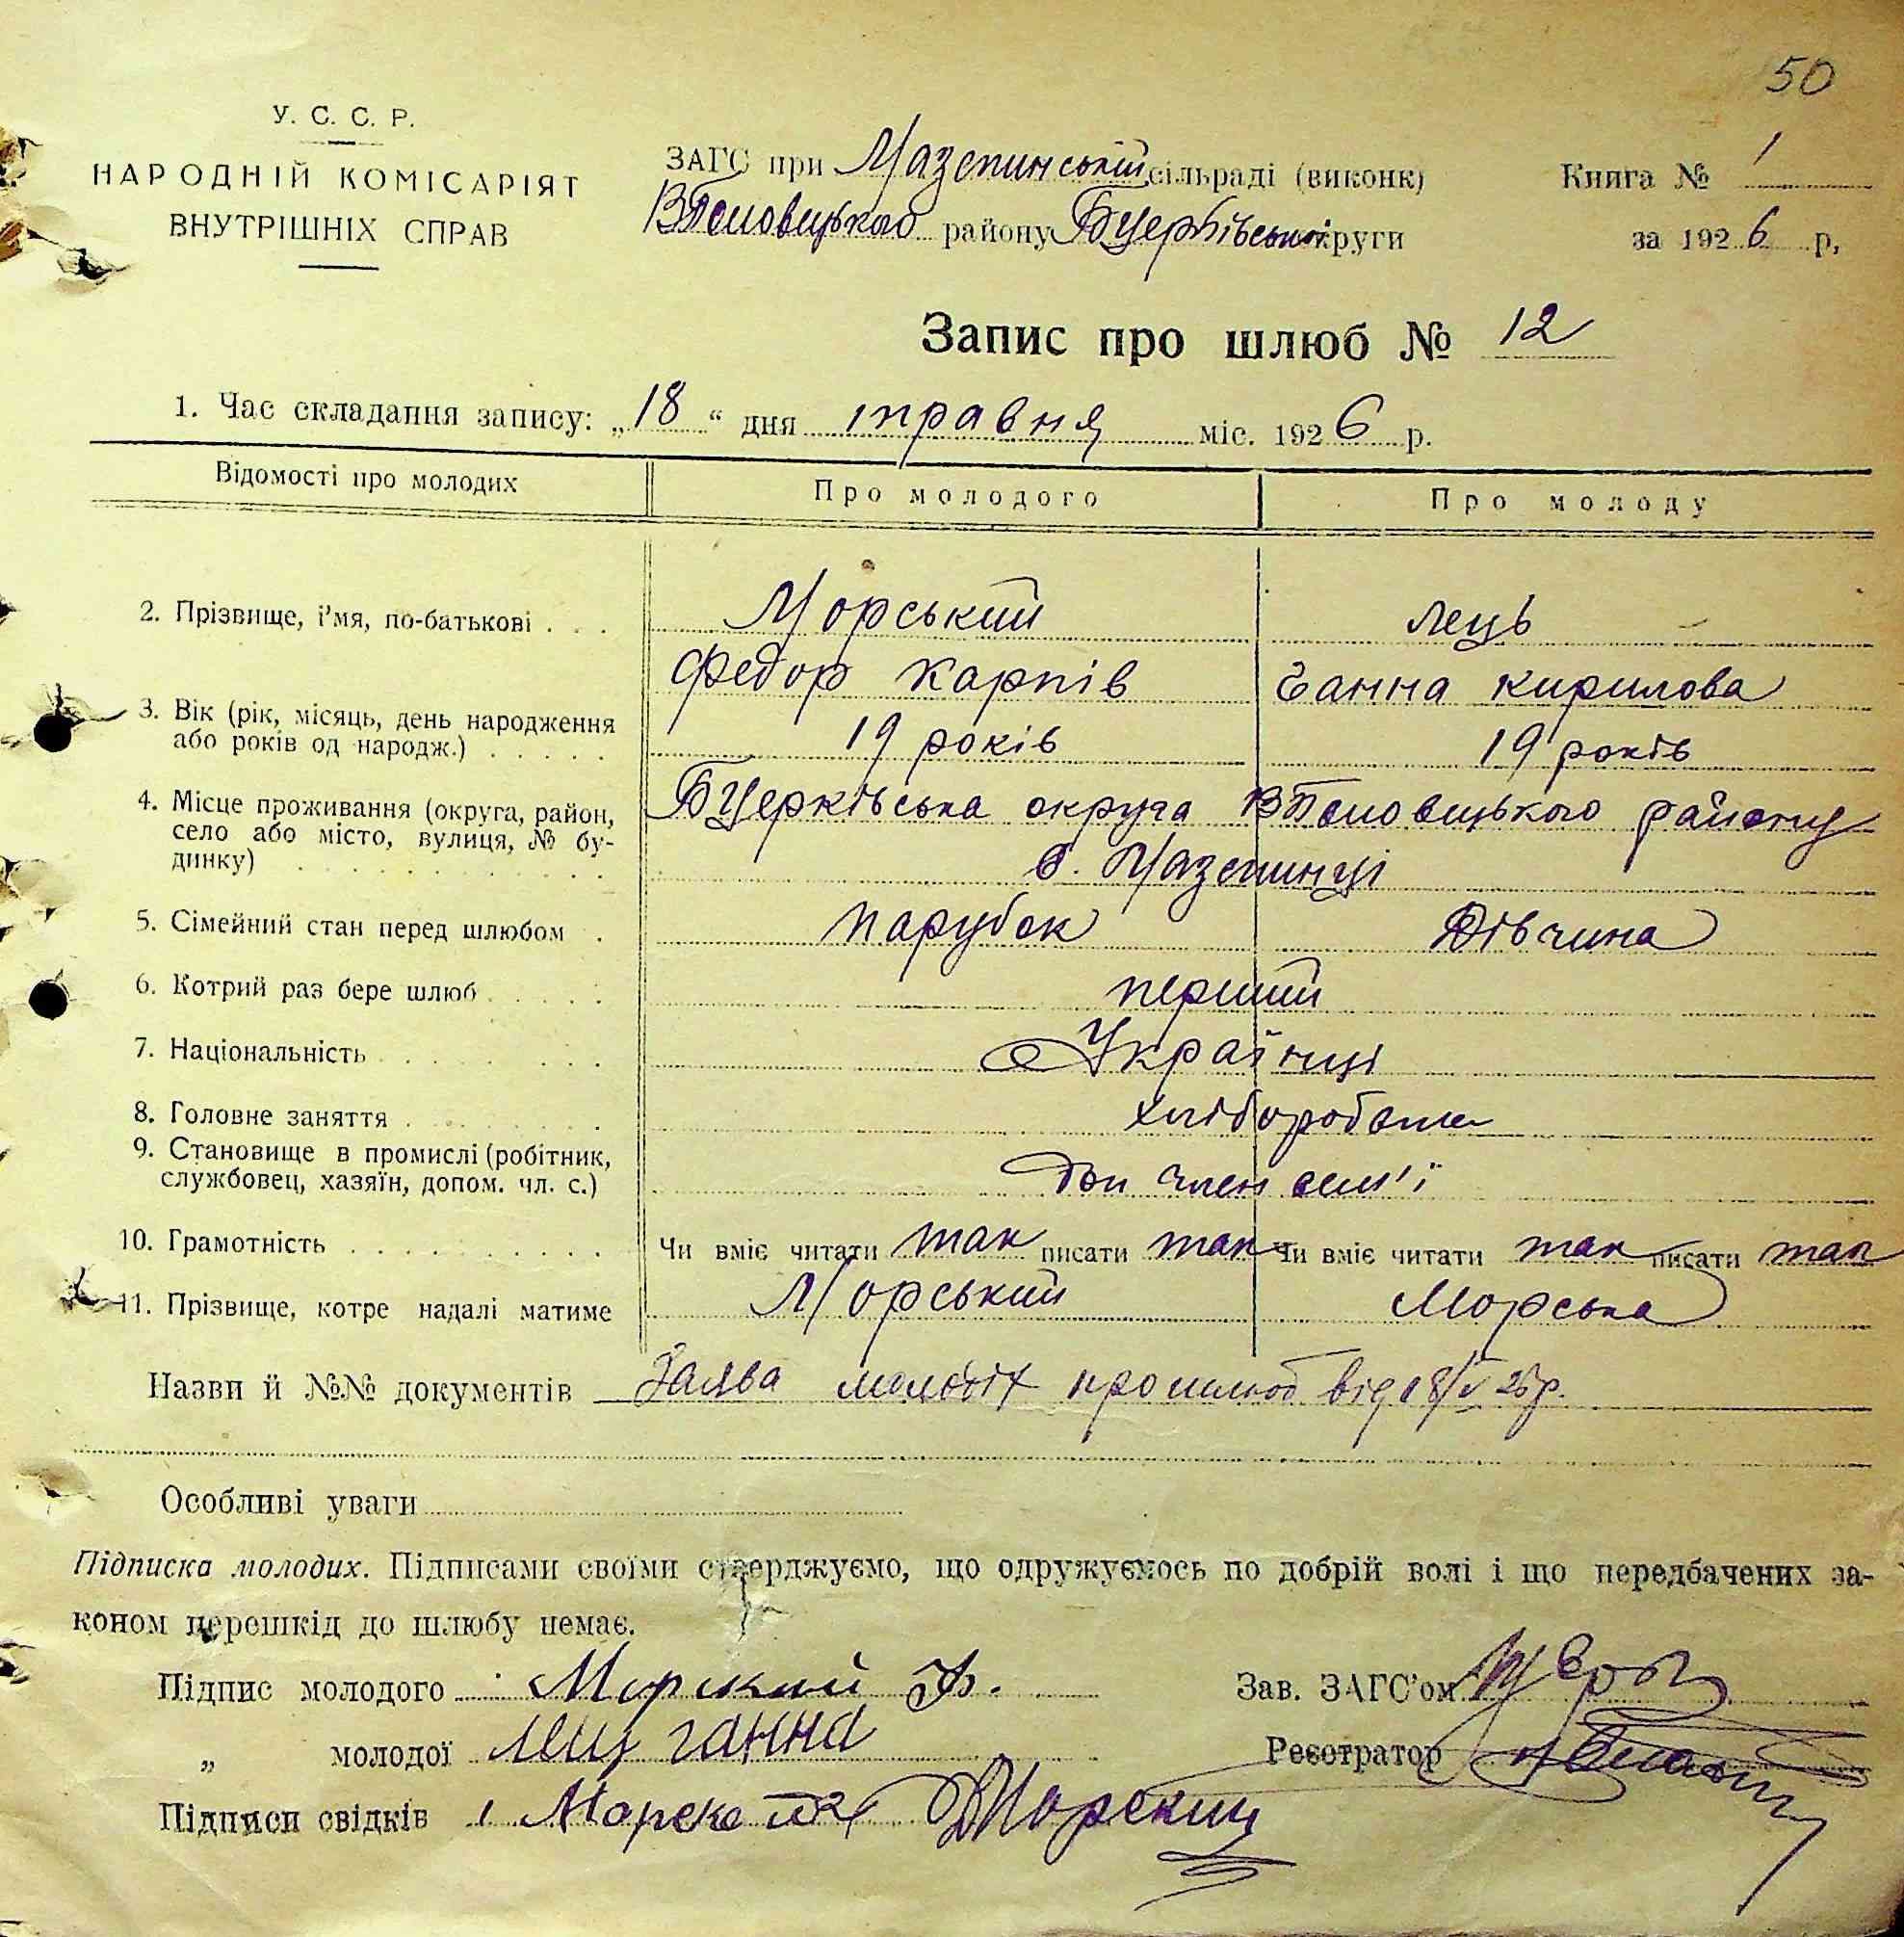 50
У. С. С. Р.
НАРОДНІЙ КОМІСАРІЯТ
ВНУТРІШНІХ СПРАВ
ЗАГС при Мазепинській сільраді (виконк)
ВПоловецького району БЦерківської округи
Книга № 1
за 1926 р,
Запис про шлюб № 12
1. Час складання запису: „18“ дня травня міс. 1926 р.
Відомості про молодих Про молодого Про молоду
2. Прізвище, і'мя, по-батькові . . . Морський Лець
Федор Карпів Ганна Кирилова
3. Вік (рік, місяць, день народження
або років од народж.) . . . . . 19 років 19 років
4. Місце проживання (округа, район, БЦерківська округа ВПоловецького району
село або місто, вулиця, № бу-
динку) . . . . . . . . . . с. Мазепинці
5. Сімейний стан перед шлюбом . парубок Дівчина
6. Котрий раз бере шлюб . . . . . перший
7. Національність . . . . . . . . Українці
8. Головне заняття . . . . . . . . хлібороби
9. Становище в промислі (робітник,
службовец, хазяїн, допом. чл. с.) член сем'ї
10. Грамотність . . . . . . . . . . Чи вміє читати так писати так Чи вміє читати так писати так
11. Прізвище, котре надалі матиме Морський Морська
Назви й №№ документів Заява молодих про шлюб від 18/V 26р.
Особливі уваги
Підписка молодих. Підписами своїми стверджуємо, що одружуємось по добрій волі і що передбачених за-
коном перешкід до шлюбу немає.
Підпис молодого Морский Ф.
Зав. ЗАГС'ом
„ молодої Лец ганна
Реєстратор
Підписи свідків 1 Морский